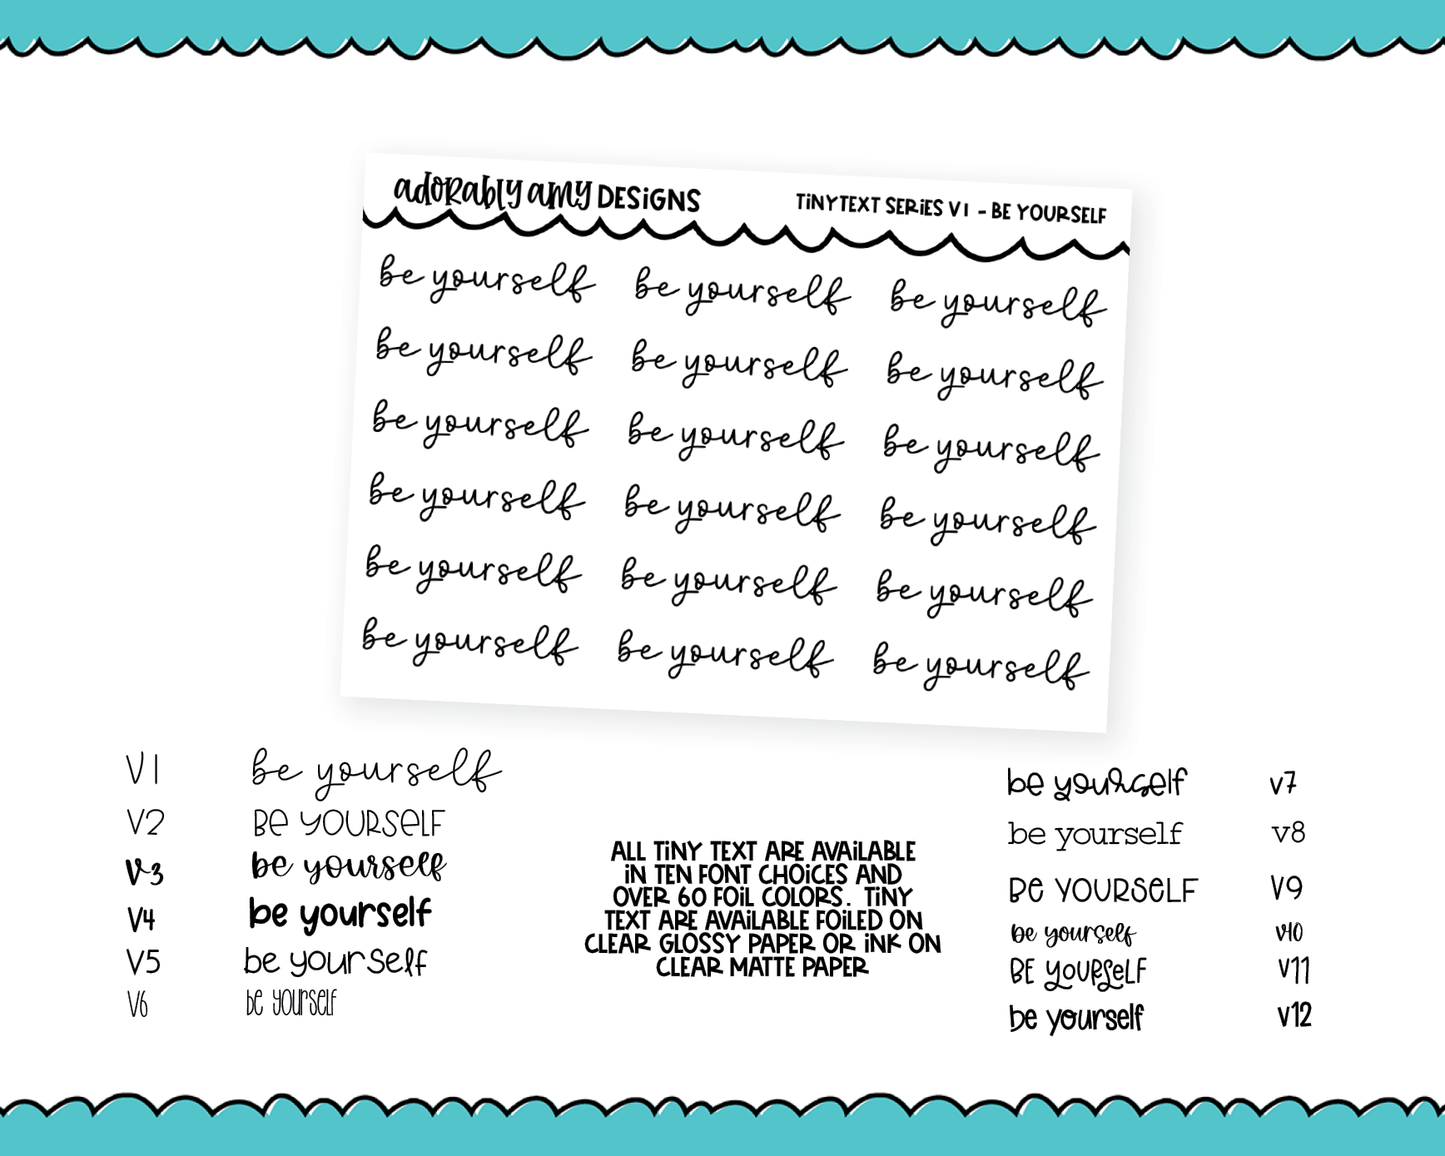 adorably amy DESiGNS
TiNYTEXT SERiES V1 - BE YOURSELF
be yourself be yourself be yourself
be yourself be yourself be yourself
be yourself be yourself be yourself
be yourself be yourself be yourself
be yourself be yourself be yourself
be yourself be yourself be yourself
V1 be yourself
V2 Be YOURSeLF
V3 be yourself
V4 be yourself
V5 be yourself
V6 be yourself
ALL TiNY TEXT ARE AVAiLABLE
iN TEN FONT CHOiCES AND
OVER 60 FOiL COLORS. TiNY
TEXT ARE AVAiLABLE FOiLED ON
CLEAR GLOSSY PAPER OR iNK ON
CLEAR MATTE PAPER
be yourself v7
be yourself v8
Be YOURSeLF V9
be yourself v10
BE YOURSELF V11
be yourself v12